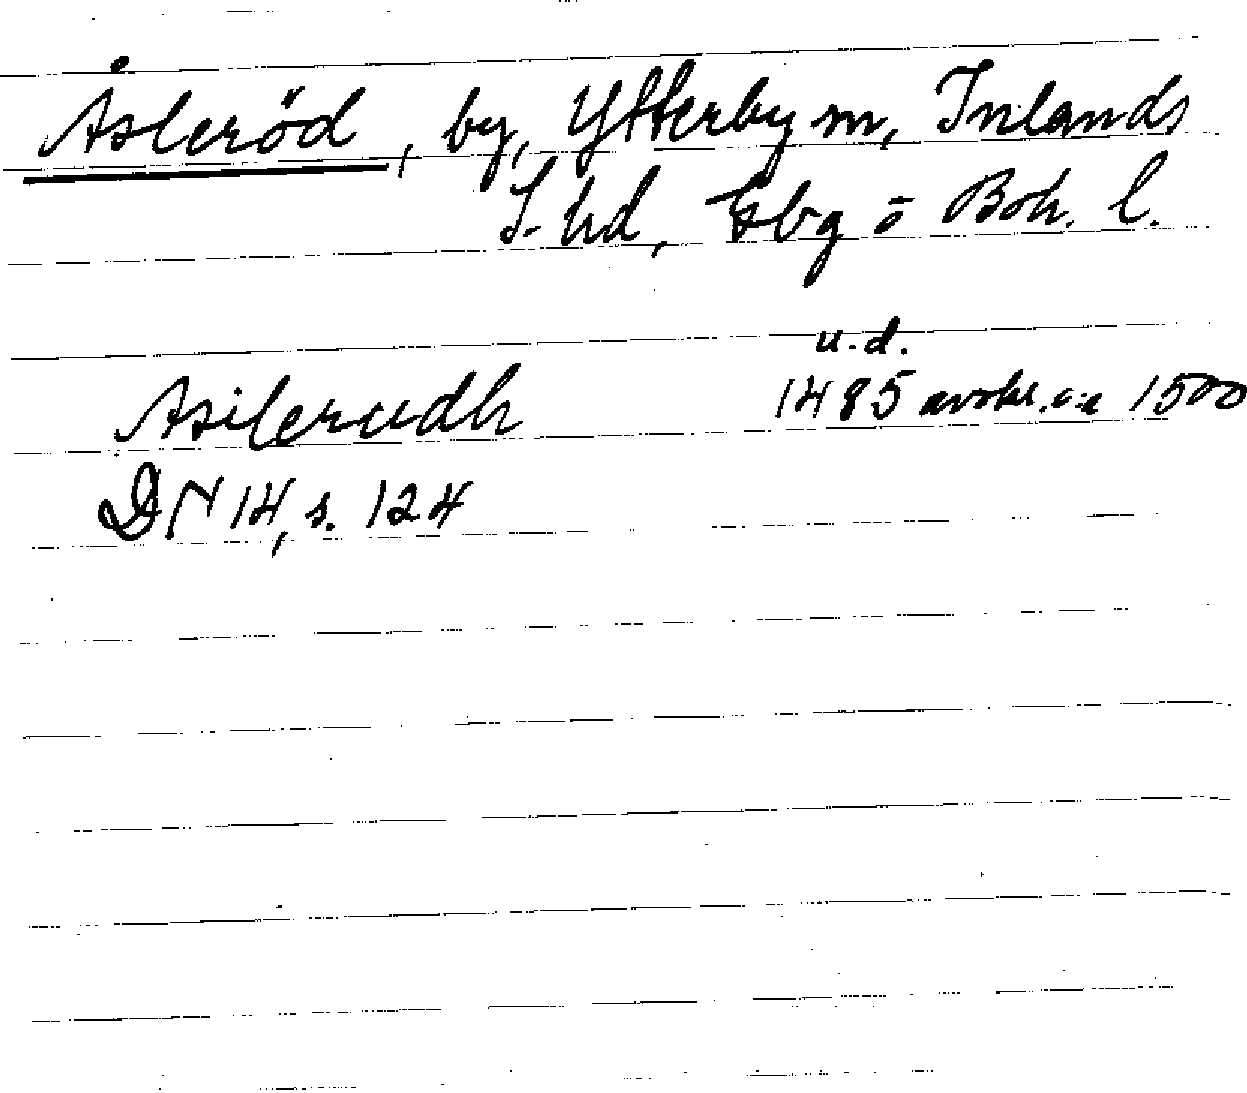 Åsleröd, by, Ytterby sn, Inlands
S. hd, Gbg o Boh. l.
u.d.
Asilerudh 1485 avskr. c:a 1500
DN 14, s. 124